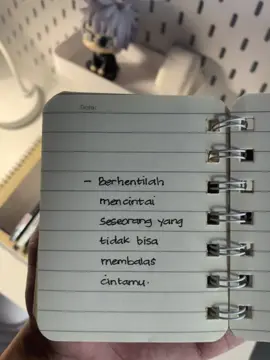 - Berhentilah
mencintai
seseorang yang
tidak bisa
membalas
cintamu.